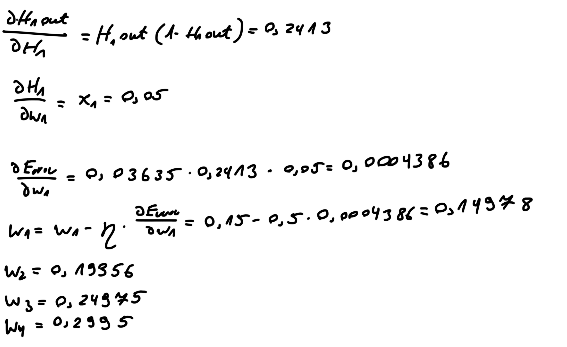 ∂H₁out/∂H₁ = H₁out (1 - H₁out) = 0,2413
∂H₁/∂w₁ = x₁ = 0,05
∂Error/∂w₁ = 0,03635 · 0,2413 · 0,05 = 0,0004386
w₁ = w₁ - η · ∂Error/∂w₁ = 0,15 - 0,5 · 0,0004386 = 0,14978
w₂ = 0,19956
w₃ = 0,24975
w₄ = 0,2995